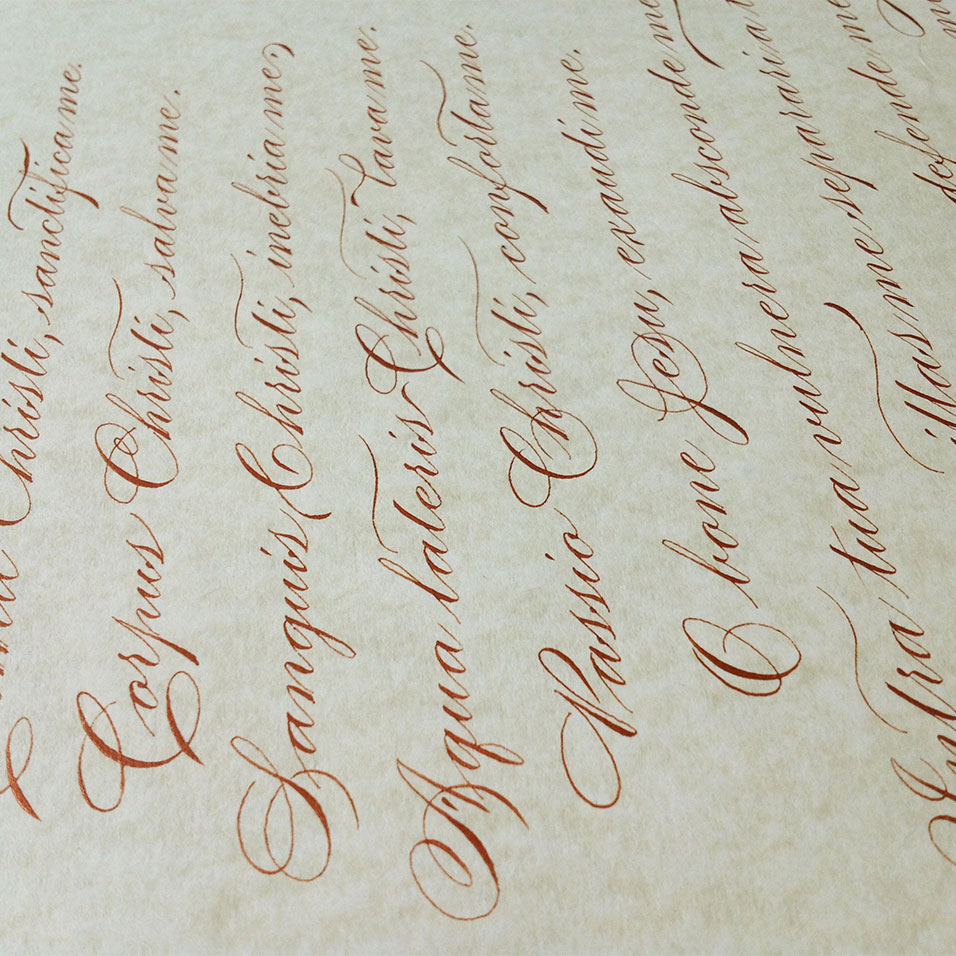 Christi, sanctifica me.
Corpus Christi, salva me.
Sanguis Christi, inebria me,
Aqua lateris Christi, lava me.
Passio Christi, conforta me.
O bone Jesu, exaudi me.
Intra tua vulnera absconde me
me separari a
defende me